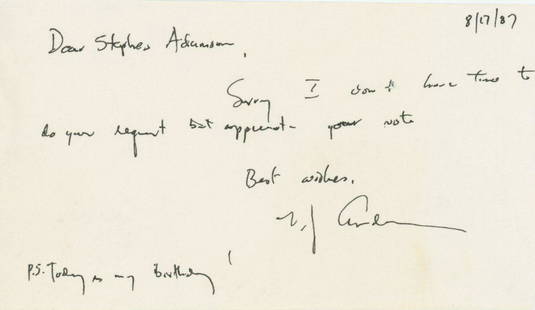 8/17/87
Dear Stephen Adamson,
Sorry I don't have time to
do your request but appreciate your note
Best wishes,
P.S. Today is my Birthday!